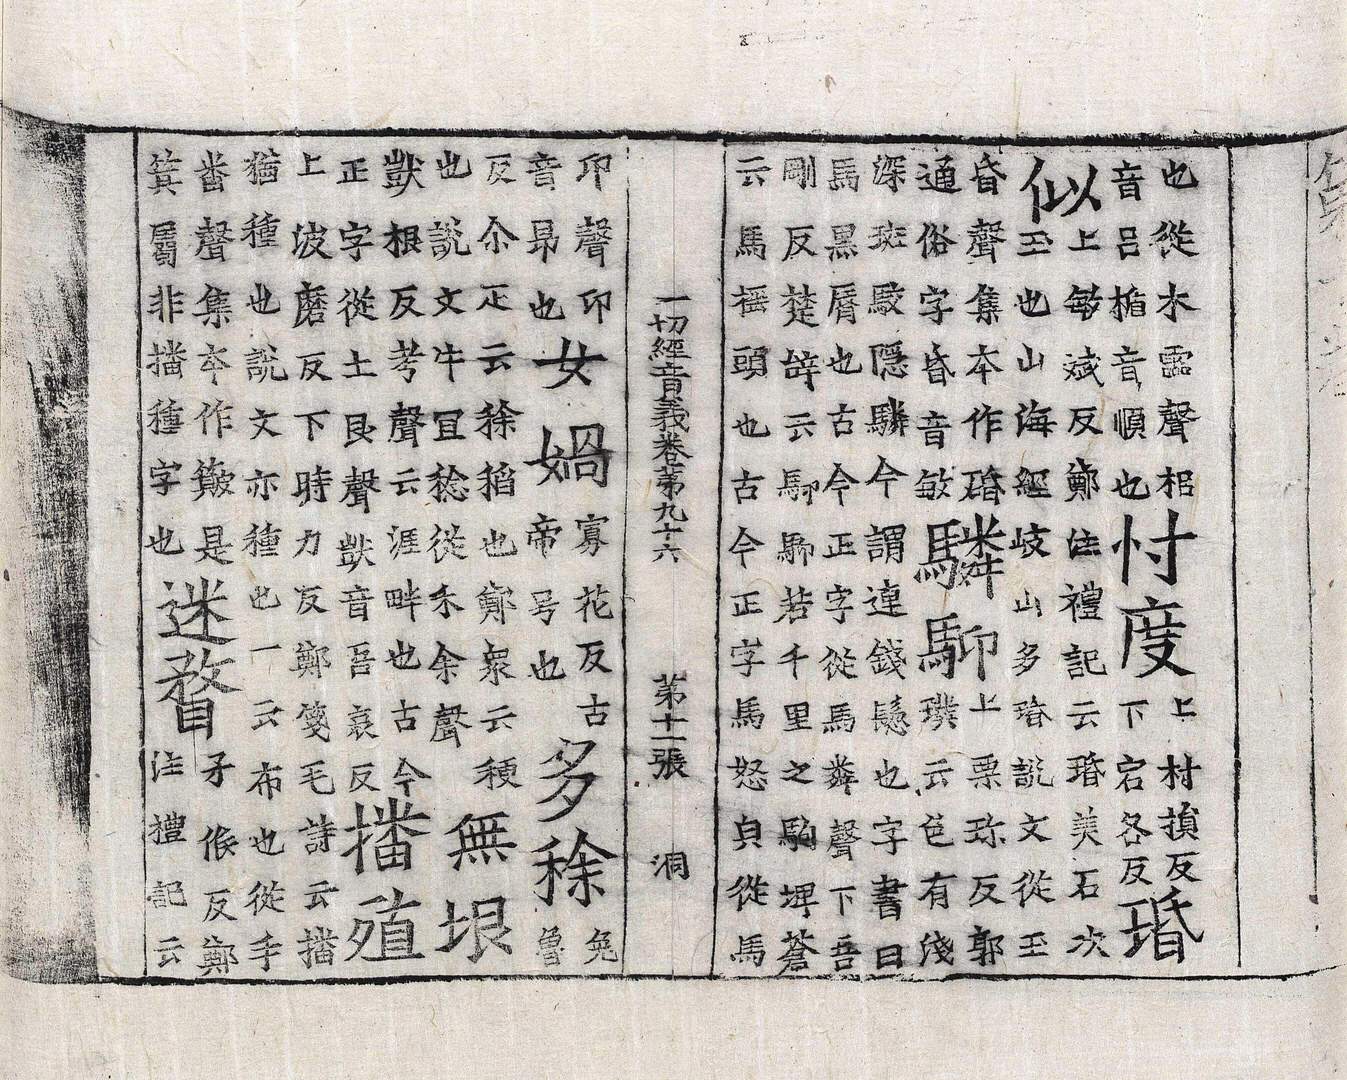 也從木雷聲梠
音呂楯音順也
忖度
上村損反
下宕各反
琘
似
上敏斌反鄭注禮記云琘美石次
玉也山海經岐山多琘說文從玉
昏聲集本作碈
通俗字昏音敏
驎䭹
上栗珎反郭
璞云色有淺
深斑駮隱驎今謂連錢驄也字書曰
馬黑脣也古今正字從馬粦聲下吾
剛反楚辝云䭹䭹若千里之駒埤蒼
云馬搖頭也古今正字馬怒皃從馬
一切經音義卷第九十六 第十一張 洞
卬聲卬
音昂也
女媧
寡花反古
帝号也
多稌
兔
魯
反尒疋云稌稻也鄭衆云稉
也說文牛冝稌從禾余聲
無垠
獃根反考聲云涯畔也古今
正字從土艮聲獃音吾哀反
播殖
上波磨反下時力反鄭箋毛詩云播
猶種也說文亦種也一云布也從手
畨聲集本作簸是
箕屬非播種字也
迷瞀
矛候反鄭
注禮記云